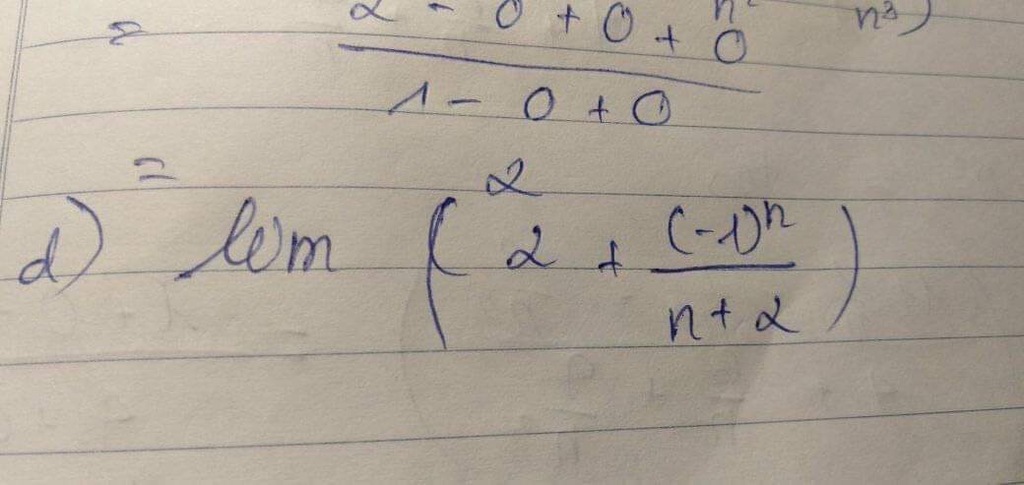 = 2 - 0 + 0 + 0 / 1 - 0 + 0
= 2
d) lim ( 2 + (-1)^n / n+2 )